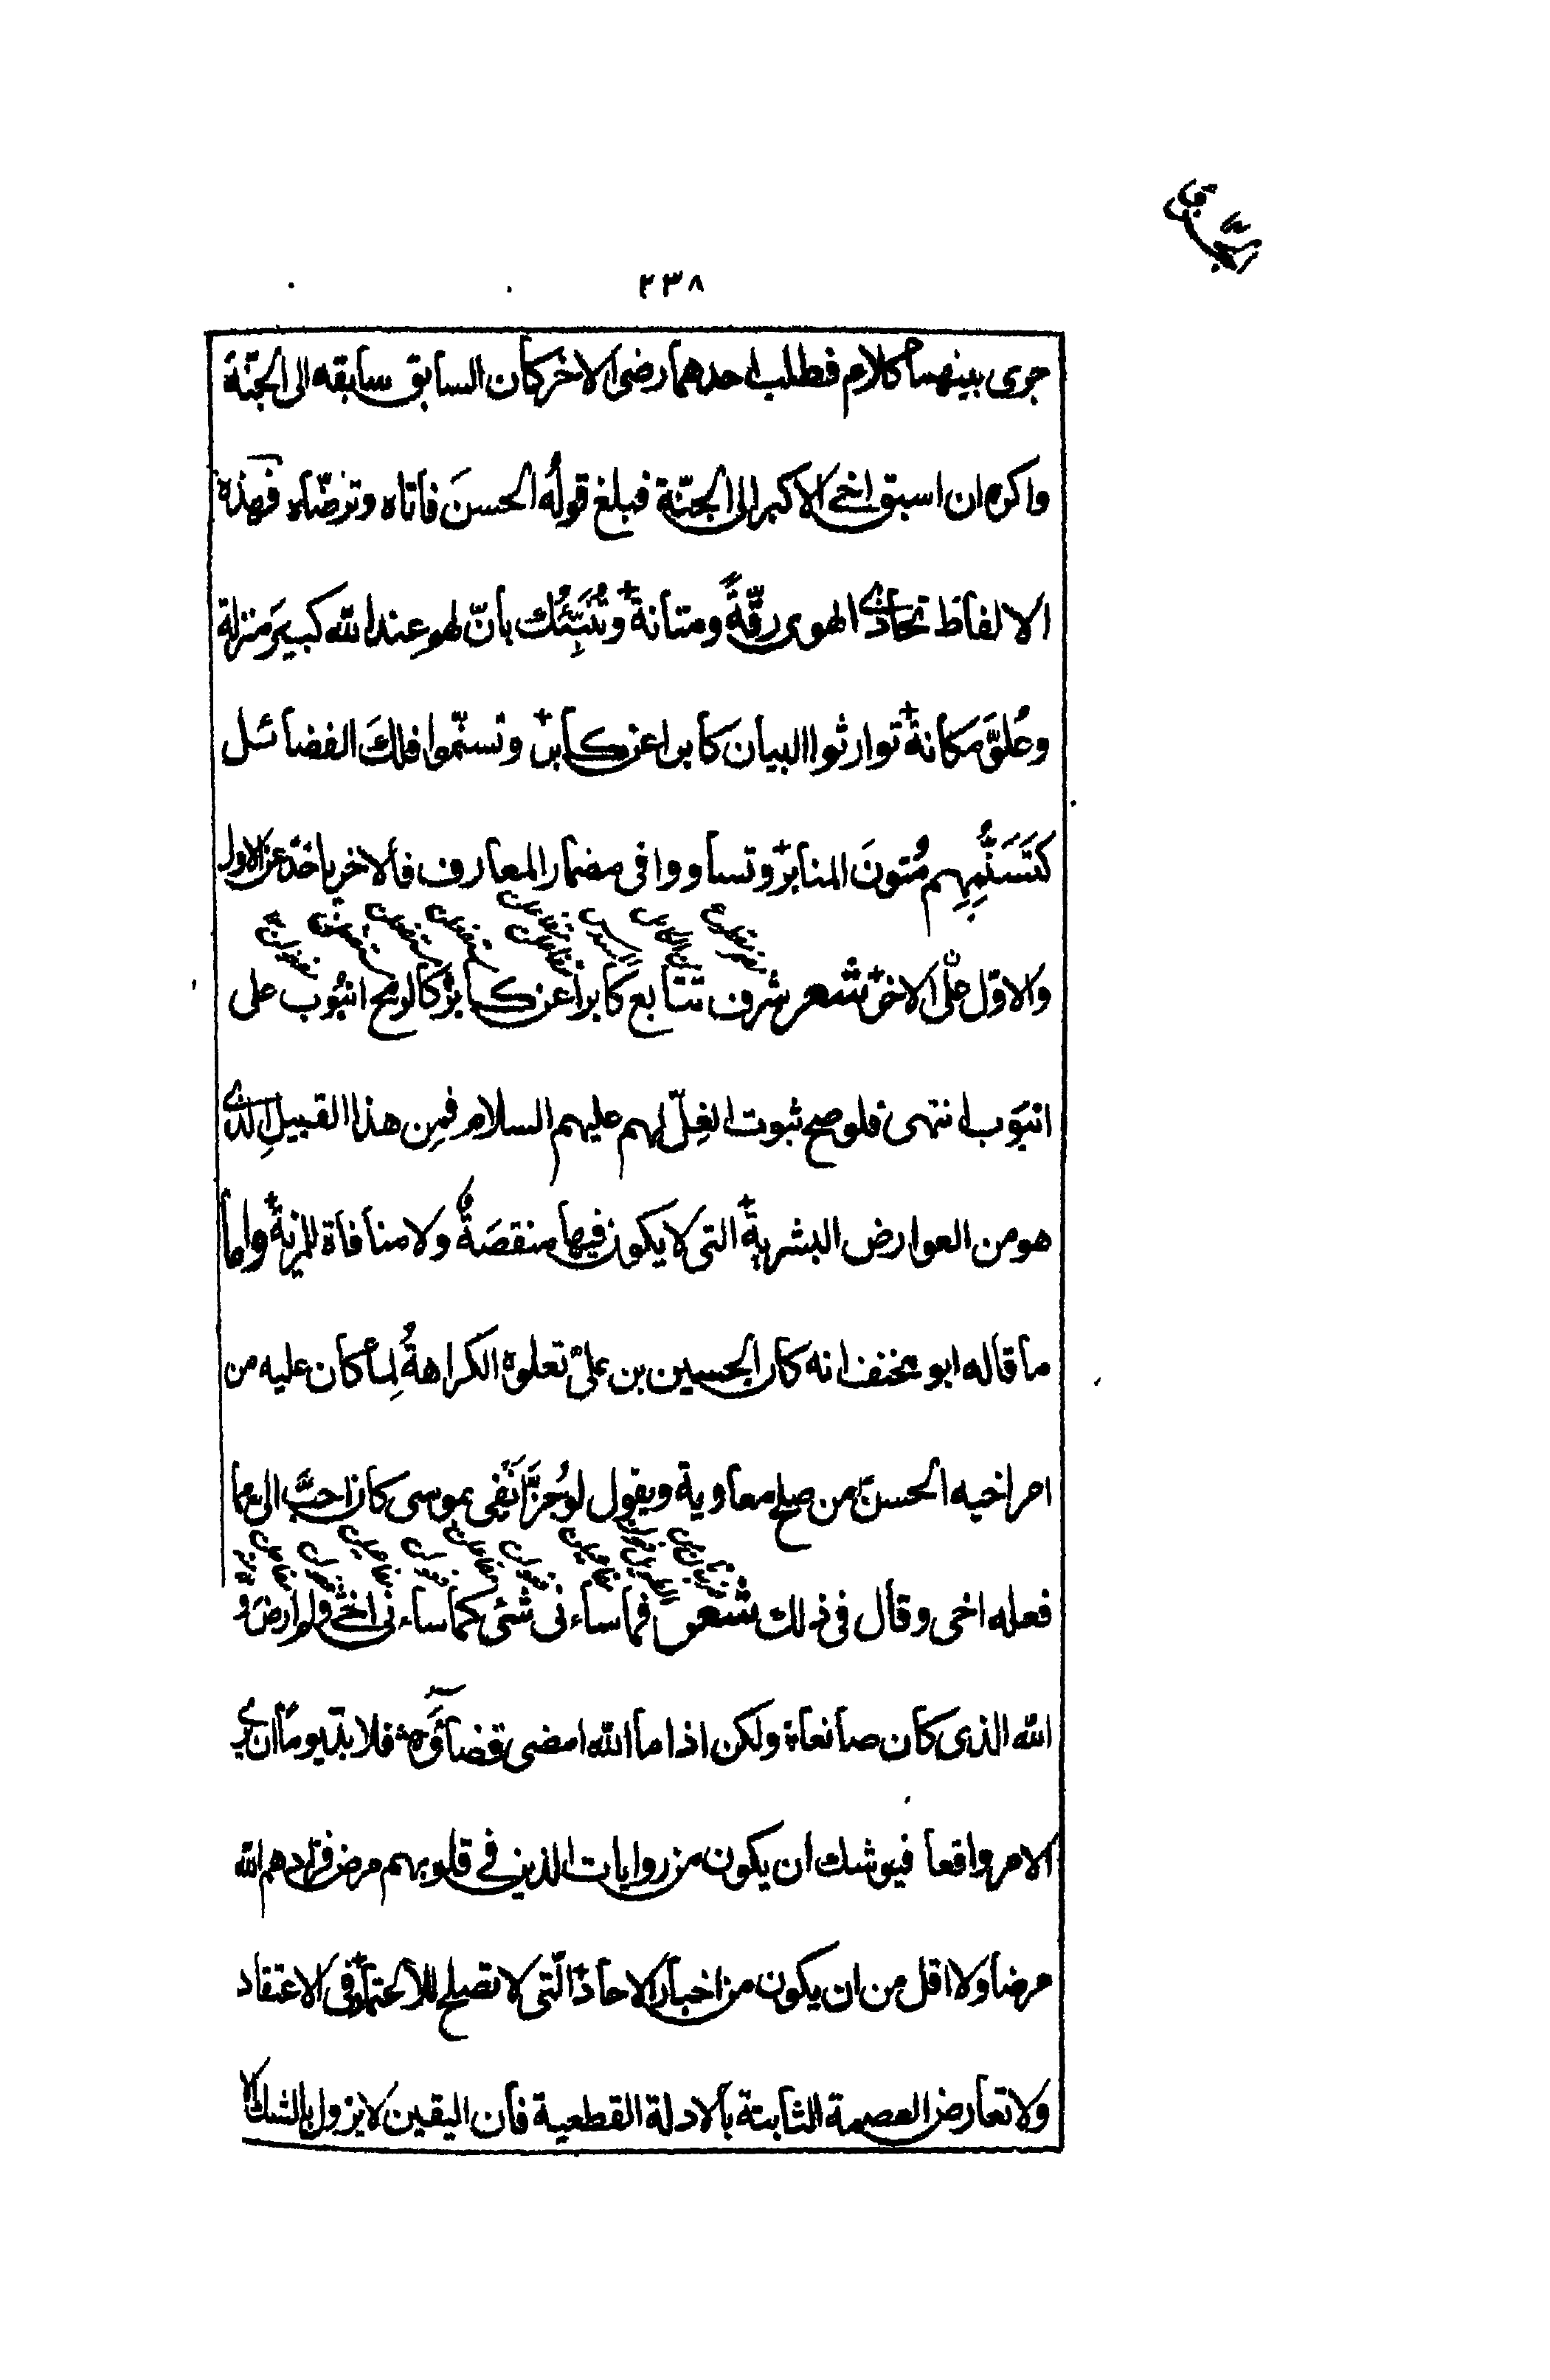 ٢٣٨
جرى بينهما كلام فطلب احدهما رضى الاخر كان السابق سابقه الى الجنّة
واكره ان اسبق اخي الاكبر الى الجنّة فبلغ قولُه الحسنَ فاتاه وترضّاه فهذه
الالفاظ تحاذي الهوى رقّةً ومتانة وتُنَبِّئُك بانّ لهم عند الله كبيرَ منزلة
وعُلوَّ مكانة توارثوا البيان كابرا عن كابر وتسنّموا فلكَ الفضائل
كتَسَنُّمِهِم مُتونَ المنابر وتساووا فى مضمار المعارف فالاخر ياخذ عن الاول
والاوّل علَى الاخر شعر شرف تتابع كابرا عن كابر كالرمح انبُوب على
انبوَب انتهى فلو صح ثبوت الغِلّ لهم عليهم السلام فمِن هذا القبيلِ الذي
هو من العوارض البشرية التى لا يكون فيها منقصَةٌ ولا منافاة للمزية واما
ما قاله ابو مخنف انه كان الحسين بن علىؑ تعلوه الكراهةُ لِما كان عليه من
امر اخيه الحسنؑ من صلح معاوية ويقول لو حُزَّ اَنفى بموسى كان احبَّ الى مما
فعله اخى وقال فى ذلك شعر فما ساءنى شئ كما ساءنى اخي ولم ارض و
الله الذى كان صانعا ولكن اذا ما الله امضى قضاؤه فلا بد يوما ان يري
الامر واقعا فيوشك ان يكون من روايات الذين في قلوبهم مرض فزادهم الله
مرضا ولا اقل من ان يكون من اخبار الاحاد الّتى لا تصلح للاحتجاج فى الاعتقاد
ولا تعارض العصمة الثابتة بالادلة القطعية فان اليقين لا يزول بالشك لا